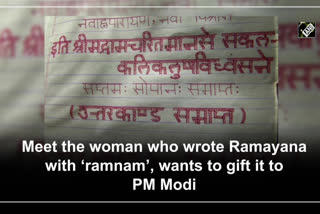 नवाह्नपारायण, नवाँ
इति श्रीमद्रामचरितमानसे सकल-
कलिकलुषविध्वसने
सप्तमः सोपानः समाप्तः
(उत्तरकाण्ड समाप्त)
Meet the woman who wrote Ramayana
with ‘ramnam’, wants to gift it to
PM Modi